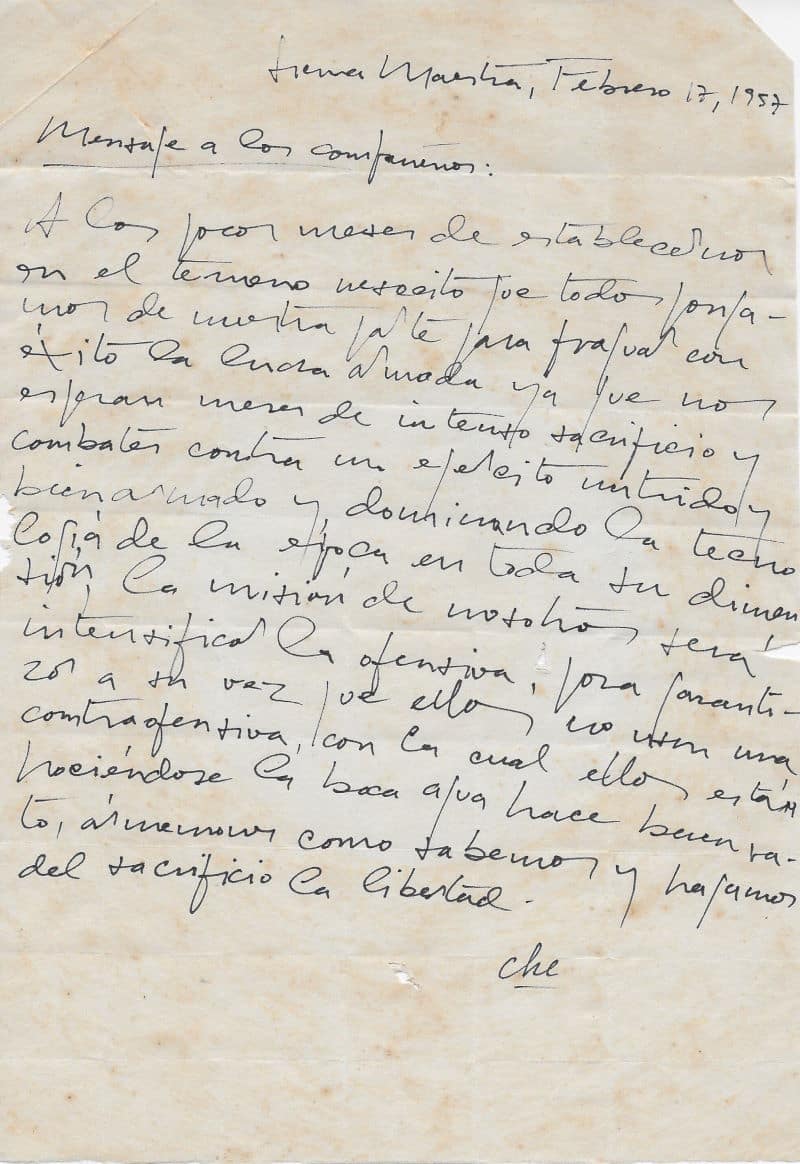 Sierra Maestra, Febrero 17, 1957
Mensaje a los compañeros:
A los pocos meses de establecernos
en el terreno necesito que todos ponga-
mos de nuestra parte para fraguar con
éxito la lucha armada ya que nos
esperan meses de intenso sacrificio y
combates contra un ejército nutrido y
bien armado y dominando la tecno
logía de la época en toda su dimen
sión, la misión de nosotros será
intensificar la ofensiva, para garanti-
zar a su vez que ellos no usen una
contraofensiva, con la cual ellos están
haciéndose la boca agua hace buen ra-
to, armemonos como sabemos y hagamos
del sacrificio la libertad.
che